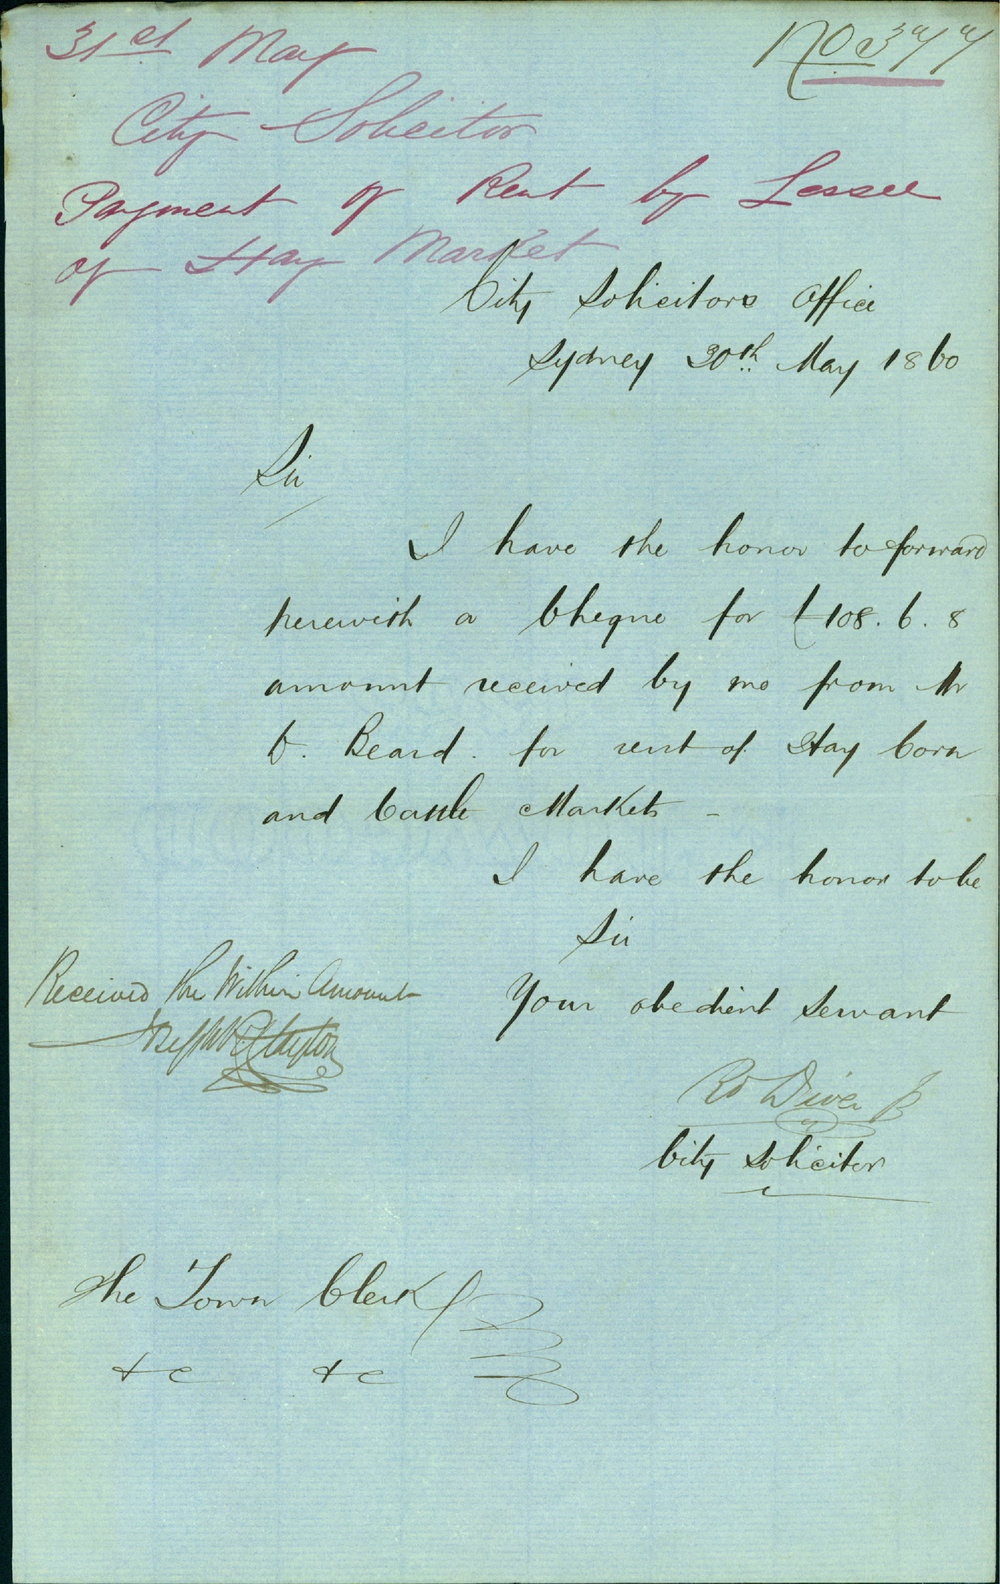 31st May
No 377
City Solicitor
Payment of Rent by Lessee
of Hay Market
City Solicitors Office
Sydney 30th May 1860
Sir
I have the honor to forward
herewith a Cheque for £108.6.8
amount received by me from Mr
Beard. for rent of Hay Corn
and Cattle Markets -
I have the honor to be
Sir
Your obedient Servant
Received the Within Amount
City Solicitor
The Town Clerk
&c &c